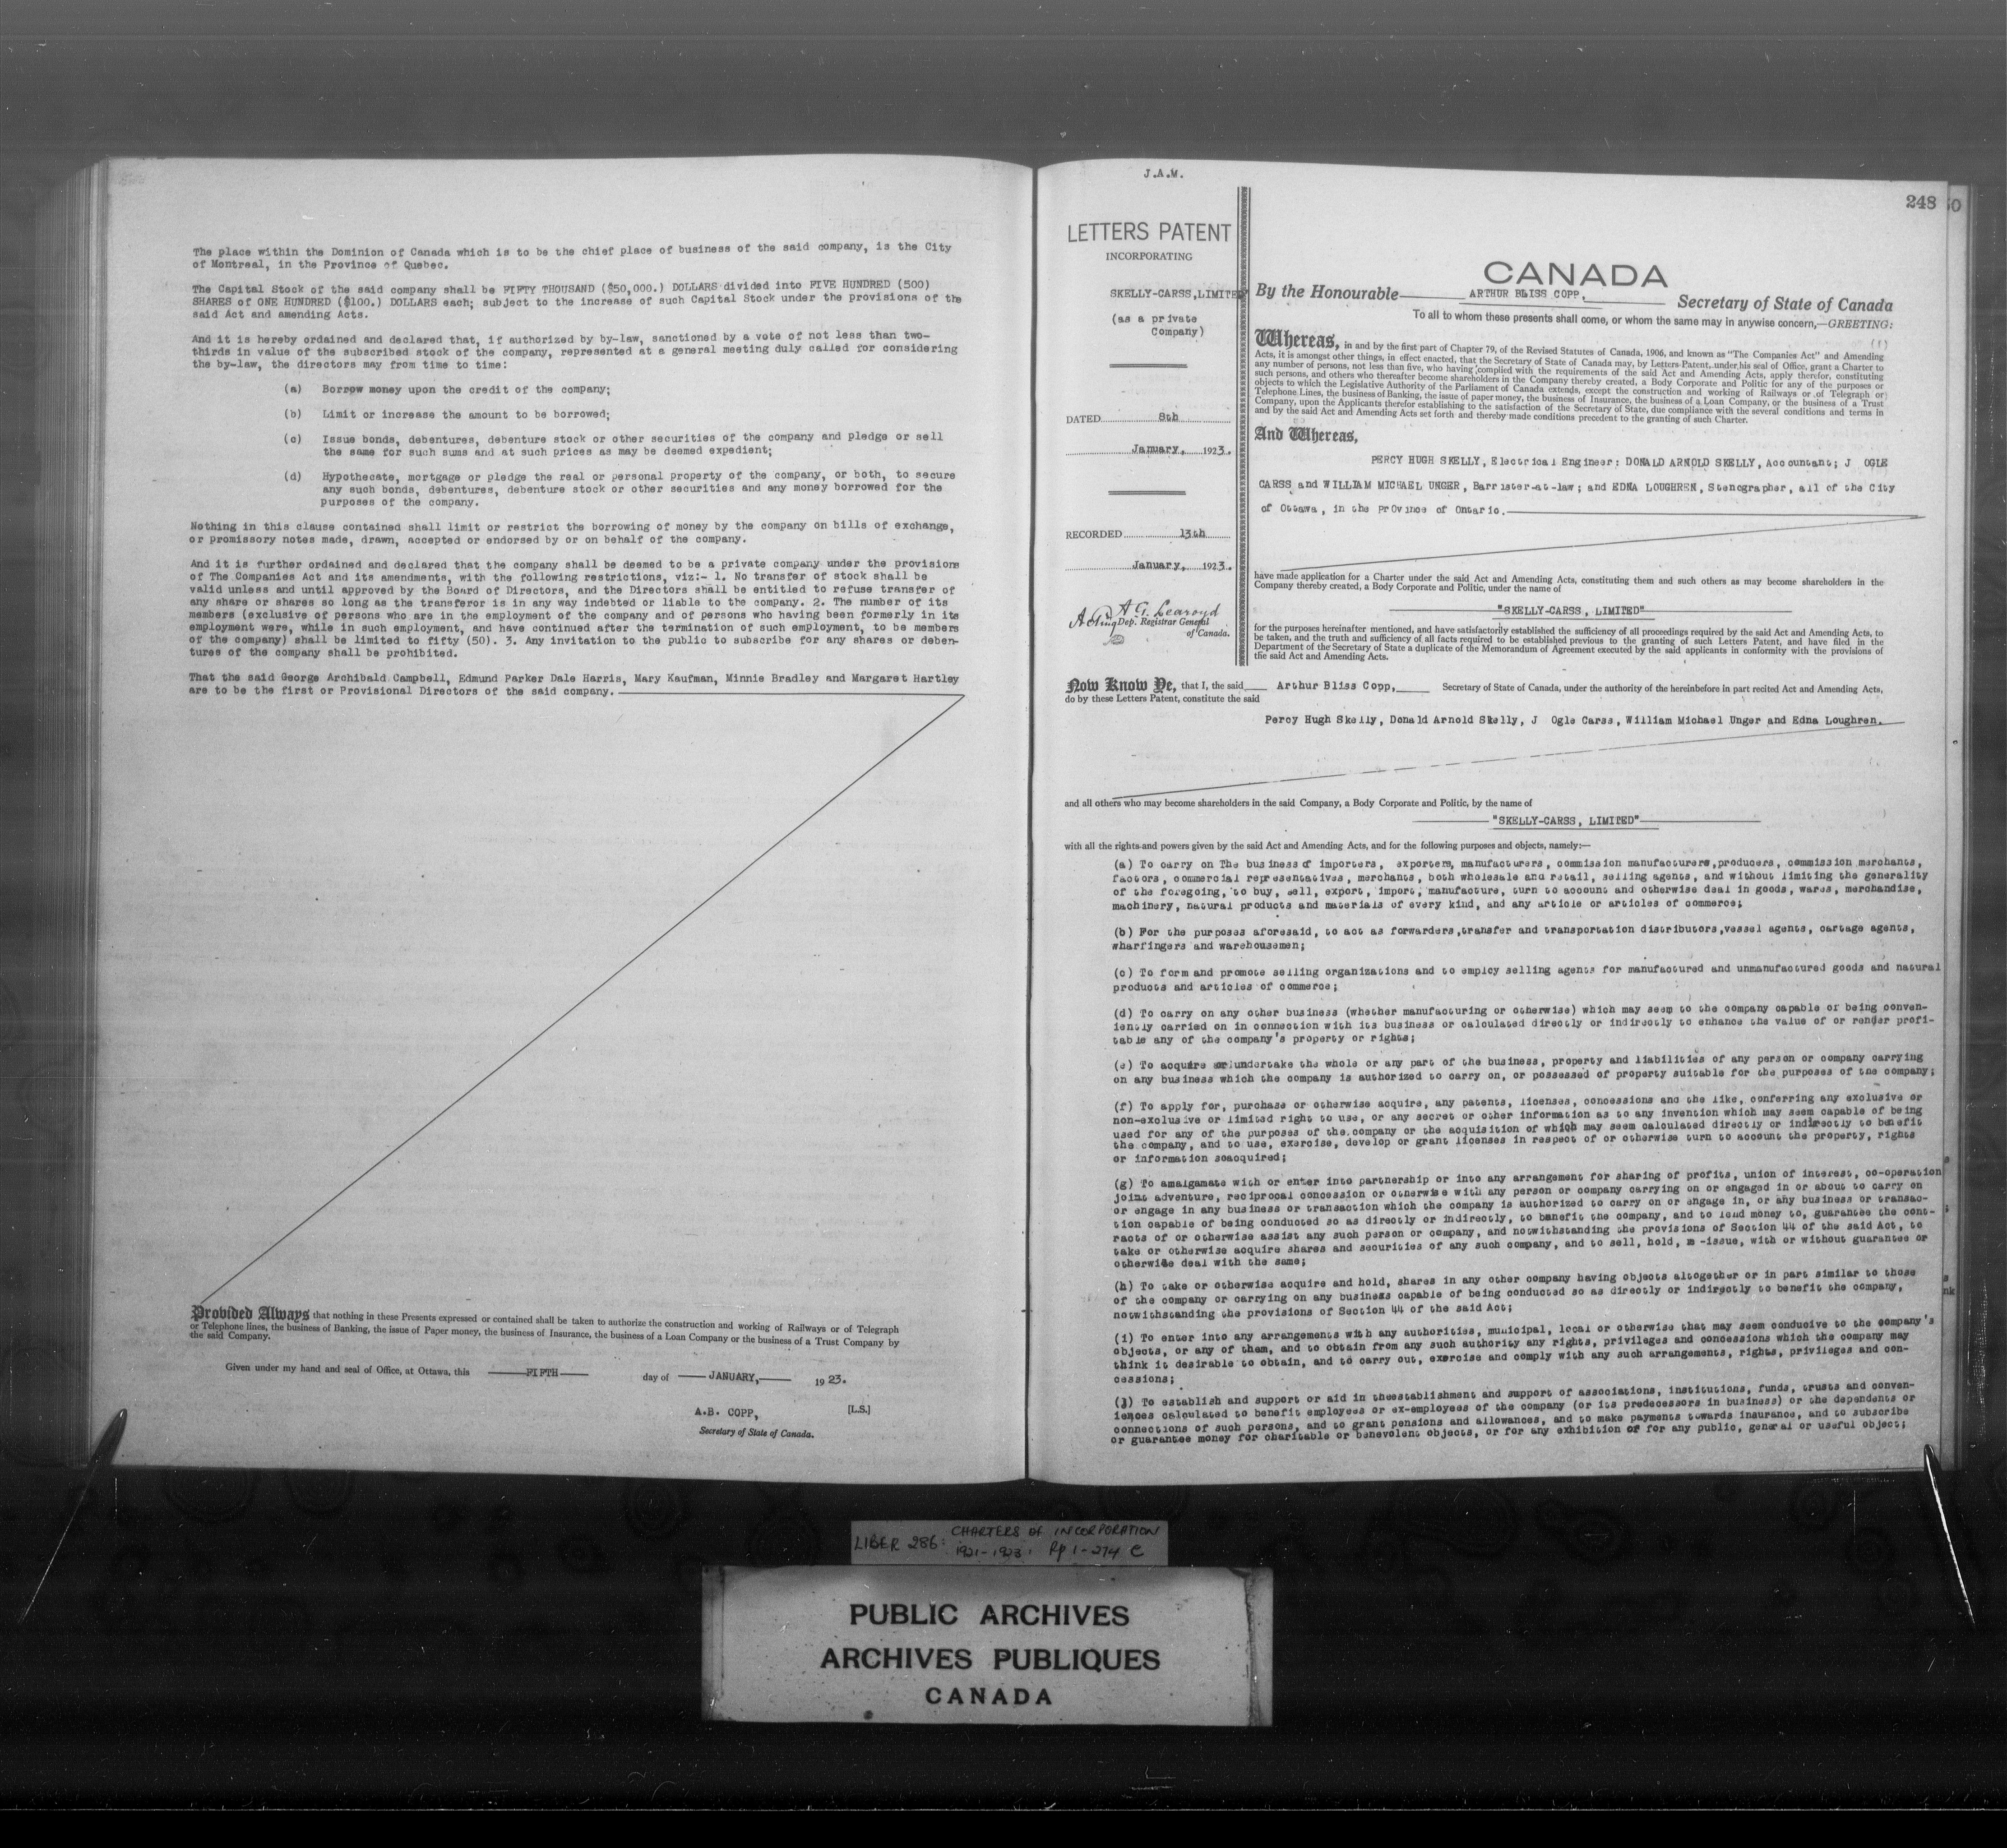 The place within the Dominion of Canada which is to be the chief place of business of the said company, is the City
of Montreal, in the Province of Quebec.
The Capital Stock of the said company shall be FIFTY THOUSAND ($50,000.) DOLLARS divided into FIVE HUNDRED (500)
SHARES of ONE HUNDRED ($100.) DOLLARS each; subject to the increase of such Capital Stock under the provisions of the
said Act and amending Acts.
And it is hereby ordained and declared that, if authorized by by-law, sanctioned by a vote of not less than two-
thirds in value of the subscribed stock of the company, represented at a general meeting duly called for considering
the by-law, the directors may from time to time:
(a) Borrow money upon the credit of the company;
(b) Limit or increase the amount to be borrowed;
(c) Issue bonds, debentures, debenture stock or other securities of the company and pledge or sell
the same for such sums and at such prices as may be deemed expedient;
(d) Hypothecate, mortgage or pledge the real or personal property of the company, or both, to secure
any such bonds, debentures, debenture stock or other securities and any money borrowed for the
purposes of the company.
Nothing in this clause contained shall limit or restrict the borrowing of money by the company on bills of exchange,
or promissory notes made, drawn, accepted or endorsed by or on behalf of the company.
And it is further ordained and declared that the company shall be deemed to be a private company under the provisions
of The Companies Act and its amendments, with the following restrictions, viz:- 1. No transfer of stock shall be
valid unless and until approved by the Board of Directors, and the Directors shall be entitled to refuse transfer of
any share or shares so long as the transferor is in any way indebted or liable to the company. 2. The number of its
members (exclusive of persons who are in the employment of the company and of persons who having been formerly in its
employment were, while in such employment, and have continued after the termination of such employment, to be members
of the company) shall be limited to fifty (50). 3. Any invitation to the public to subscribe for any shares or deben-
tures of the company shall be prohibited.
That the said George Archibald Campbell, Edmund Parker Dale Harris, Mary Kaufman, Minnie Bradley and Margaret Hartley
are to be the first or Provisional Directors of the said company.
Provided Always that nothing in these Presents expressed or contained shall be taken to authorize the construction and working of Railways or of Telegraph
or Telephone lines, the business of Banking, the issue of Paper money, the business of Insurance, the business of a Loan Company or the business of a Trust Company by
the said Company.
Given under my hand and seal of Office, at Ottawa, this FIFTH day of JANUARY, 1923.
A.B. COPP, [L.S.]
Secretary of State of Canada.
J.A.M.
248
50
LETTERS PATENT
INCORPORATING
SKELLY-CARSS,LIMITED
(as a private
Company)
DATED 8th
January, 1923.
RECORDED 13th
January, 1923.
A.G. Learoyd
Acting Dep. Registrar General
of Canada.
CANADA
By the Honourable ARTHUR BLISS COPP, Secretary of State of Canada
To all to whom these presents shall come, or whom the same may in anywise concern,—GREETING:
(1)
Whereas, in and by the first part of Chapter 79, of the Revised Statutes of Canada, 1906, and known as "The Companies Act" and Amending
Acts, it is amongst other things, in effect enacted, that the Secretary of State of Canada may, by Letters-Patent, under his seal of Office, grant a Charter to
any number of persons, not less than five, who having complied with the requirements of the said Act and Amending Acts, apply therefor, constituting
such persons, and others who thereafter become shareholders in the Company thereby created, a Body Corporate and Politic for any of the purposes or
objects to which the Legislative Authority of the Parliament of Canada extends, except the construction and working of Railways or of Telegraph or
Telephone Lines, the business of Banking, the issue of paper money, the business of Insurance, the business of a Loan Company, or the business of a Trust
Company, upon the Applicants therefor establishing to the satisfaction of the Secretary of State, due compliance with the several conditions and terms in
and by the said Act and Amending Acts set forth and thereby made conditions precedent to the granting of such Charter.
And Whereas,
PERCY HUGH SKELLY, Electrical Engineer: DONALD ARNOLD SKELLY, Accountant; J OGLE
CARSS and WILLIAM MICHAEL UNGER, Barrister-at-law; and EDNA LOUGHREN, Stenographer, all of the City
of Ottawa, in the Province of Ontario.
have made application for a Charter under the said Act and Amending Acts, constituting them and such others as may become shareholders in the
Company thereby created, a Body Corporate and Politic, under the name of
"SKELLY-CARSS, LIMITED"
for the purposes hereinafter mentioned, and have satisfactorily established the sufficiency of all proceedings required by the said Act and Amending Acts, to
be taken, and the truth and sufficiency of all facts required to be established previous to the granting of such Letters Patent, and have filed in the
Department of the Secretary of State a duplicate of the Memorandum of Agreement executed by the said applicants in conformity with the provisions of
the said Act and Amending Acts.
Now Know Ye, that I, the said Arthur Bliss Copp, Secretary of State of Canada, under the authority of the hereinbefore in part recited Act and Amending Acts,
do by these Letters Patent, constitute the said
Percy Hugh Skelly, Donald Arnold Skelly, J Ogle Carss, William Michael Unger and Edna Loughren.
and all others who may become shareholders in the said Company, a Body Corporate and Politic, by the name of
"SKELLY-CARSS, LIMITED"
with all the rights and powers given by the said Act and Amending Acts, and for the following purposes and objects, namely:—
(a) To carry on The business of importers, exporters, manufacturers, commission manufacturers,producers, commission merchants,
factors, commercial representatives, merchants, both wholesale and retail, selling agents, and without limiting the generality
of the foregoing, to buy, sell, export, import, manufacture, turn to account and otherwise deal in goods, wares, merchandise,
machinery, natural products and materials of every kind, and any article or articles of commerce;
(b) For the purposes aforesaid, to act as forwarders,transfer and transportation distributors,vessel agents, cartage agents,
wharfingers and warehousemen;
(c) To form and promote selling organizations and to employ selling agents for manufactured and unmanufactured goods and natural
products and articles of commerce;
(d) To carry on any other business (whether manufacturing or otherwise) which may seem to the company capable of being conven-
iently carried on in connection with its business or calculated directly or indirectly to enhance the value of or render profi-
table any of the company's property or rights;
(e) To acquire or undertake the whole or any part of the business, property and liabilities of any person or company carrying
on any business which the company is authorized to carry on, or possessed of property suitable for the purposes of the company;
(f) To apply for, purchase or otherwise acquire, any patents, licenses, concessions and the like, conferring any exclusive or
non-exclusive or limited right to use, or any secret or other information as to any invention which may seem capable of being
used for any of the purposes of the company or the acquisition of which may seem calculated directly or indirectly to benefit
the company, and to use, exercise, develop or grant licenses in respect of or otherwise turn to account the property, rights
or information soacquired;
(g) To amalgamate with or enter into partnership or into any arrangement for sharing of profits, union of interest, co-operation
joint adventure, reciprocal concession or otherwise with any person or company carrying on or engaged in or about to carry on
or engage in any business or transaction which the company is authorized to carry on or engage in, or any business or transac-
tion capable of being conducted so as directly or indirectly, to benefit the company, and to lend money to, guarantee the cont-
racts of or otherwise assist any such person or company, and notwithstanding the provisions of Section 44 of the said Act, to
take or otherwise acquire shares and securities of any such company, and to sell, hold, re-issue, with or without guarantee or
otherwise deal with the same;
(h) To take or otherwise acquire and hold, shares in any other company having objects altogether or in part similar to those
of the company or carrying on any business capable of being conducted so as directly or indirectly to benefit the company,
notwithstanding the provisions of Section 44 of the said Act;
(i) To enter into any arrangements with any authorities, municipal, local or otherwise that may seem conducive to the company's
objects, or any of them, and to obtain from any such authority any rights, privileges and concessions which the company may
think it desirable to obtain, and to carry out, exercise and comply with any such arrangements, rights, privileges and con-
cessions;
(j) To establish and support or aid in theestablishment and support of associations, institutions, funds, trusts and conven-
iences calculated to benefit employees or ex-employees of the company (or its predecessors in business) or the dependents or
connections of such persons, and to grant pensions and allowances, and to make payments towards insurance, and to subscribe
or guarantee money for charitable or benevolent objects, or for any exhibition or for any public, general or useful object;
LIBER 286: CHARTERS OF INCORPORATION
1921-1923.
PUBLIC ARCHIVES
ARCHIVES PUBLIQUES
CANADA